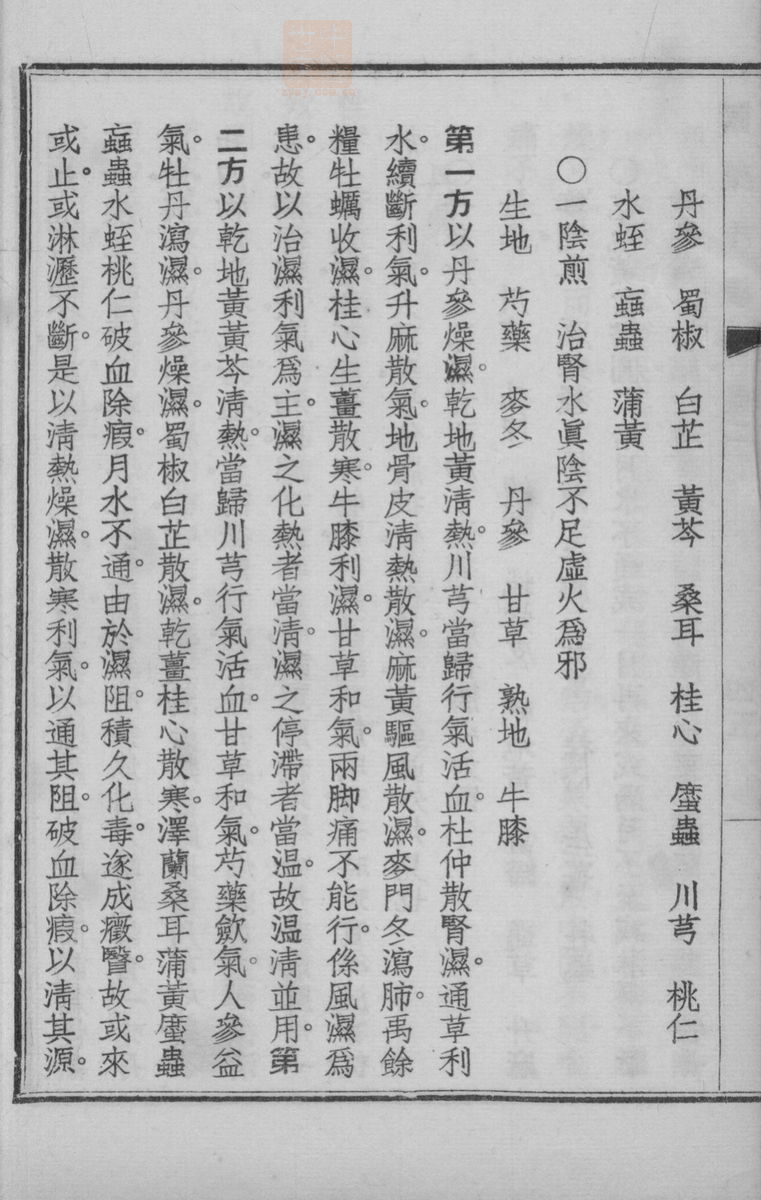 丹參　蜀椒　白芷　黃芩　桑耳　桂心　䗪蟲　川芎　桃仁
水蛭　蝱蟲　蒲黃
〇一陰煎　治腎水眞陰不足虛火爲邪
生地　芍藥　麥冬　丹參　甘草　熟地　牛膝
第一方以丹參燥濕。乾地黃淸熱。川芎當歸行氣活血。杜仲散腎濕。通草利
水。續斷利氣。升麻散氣。地骨皮淸熱散濕。麻黃驅風散濕。麥門冬瀉肺。禹餘
糧牡蠣收濕。桂心生薑散寒。牛膝利濕。甘草和氣。兩脚痛不能行。係風濕爲
患。故以治濕利氣爲主。濕之化熱者當淸。濕之停滯者當温。故温淸並用。第
二方以乾地黃黃芩淸熱。當歸川芎行氣活血。甘草和氣。芍藥歛氣。人參益
氣。牡丹瀉濕。丹參燥濕。蜀椒白芷散濕。乾薑桂心散寒。澤蘭桑耳蒲黃䗪蟲
蝱蟲水蛭桃仁破血除瘕。月水不通。由於濕阻。積久化毒。遂成癥瞖。故或來
或止。或淋瀝不斷。是以淸熱燥濕。散寒利氣。以通其阻。破血除瘕。以淸其源。